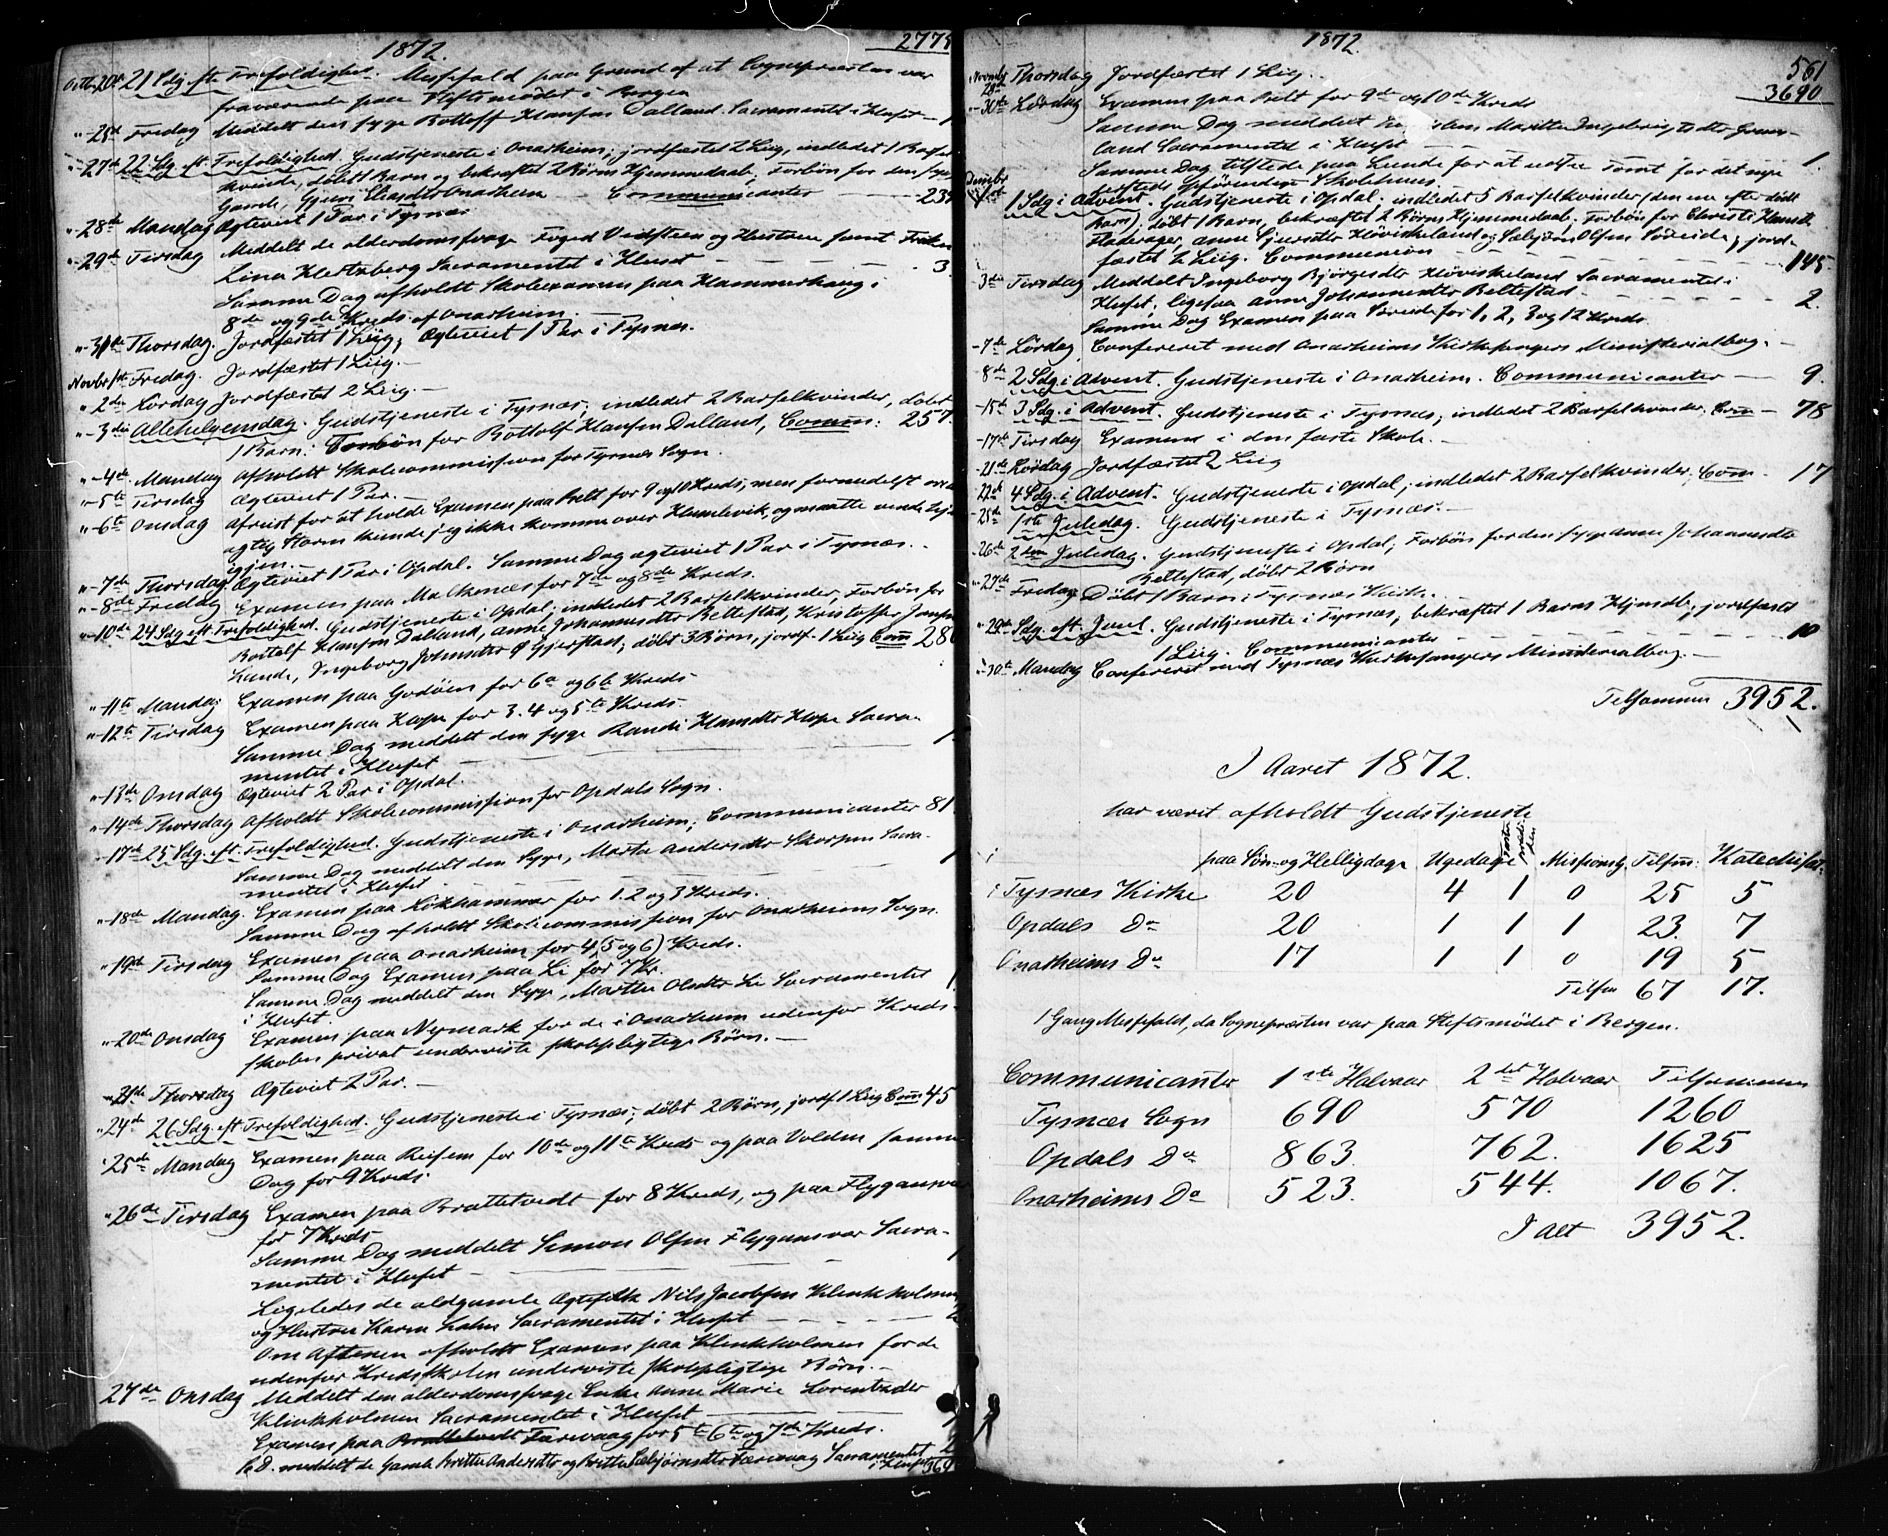 1872. 277
Octb. 20de 21 Sdg eft. Trefoldighed. Messefald paa Grund af at Sognepræsten var
fraværende paa Stiftsmødet i Bergen
" - 25de Fredag Meddelt den syge Rottolf Hansen Dalland Sacramentet i Huset — 1
" - 27de 22 Sdg. eft. Trefoldighed. Gudstjeneste i Onarheim; jordfæstet 2 Liig, indledet 1 Barsel-
kvinde, døbt 1 Barn og bekræftet 2 Børns Hjemmedaab. Forbøn for den syge
Communicanter — 23
" - 28de Mandag Ægteviet 1 Par i Tysnæs
" - 29de Tirsdag Meddelt de alderdomssvage Foged Vedsteen og Hustrue samt Frøken
Lina Hertzberg Sacramentet i Huset — 3.
Samme Dag afholdt Skoleexamen paa Hammerhaug i
8de og 9de Kreds af Onarheim. —
" - 31te Thorsdag. Jordfæstet 1 Liig; Ægteviet 1 Par i Tysnæs.
Novbr 1ste Fredag. Jordfæstet 1 Liig. —
" - 2den Lørdag Jordfæstet 2 Liig. —
" - 3die Allehelgensdag. Gudstjeneste i Tysnæs; indledet 2 Barselkvinder, døbt
1 Barn. Forbøn for Rottolf Hansen Dalland, Comm: 257.
" - 4de Mandag Afholdt Skolecommission for Tysnæs Sogn.
" - 5te Tirsdag Ægteviet 1 Par. —
" - 6te Onsdag Afreist for at holde Examen paa Relt for 9 og 10 Kreds, men formedelst
Storm kunde jeg ikke komme over Humlevik, og maatte vende
igjen. — Samme Dag ægteviet 1 Par i Tysnæs. -
" - 7de Thorsdag Ægteviet 1 Par i Opdal.
" - 8de Fredag Examen paa Malkenæs for 7de og 8de Kreds.
" - 10de 24 Sdg eft. Trefoldighed. Gudstjeneste i Opdal; indledet 2 Barselkvinder, Forbøn for
Rottolf Hansen Dalland, Anne Johannesdtr Beltestad, Kristoffer
Lunde, Ingeborg Johnsdtr Gjerstad; døbt 3 Børn, jordf. 1 Liig Com 28
" - 11te Mandag Examen paa Godøen for 6a og 6b Kreds
" - 12te Tirsdag Examen paa Hope for 3. 4 og 5te Kreds.
Samme Dag meddelt den syge Randi Hansdtr Hope Sacra-
mentet i Huset — 1
" - 13de Onsdag Ægteviet 2 Par i Opdal.
" - 14de Thorsdag Afholdt Skolecommission for Opdals Sogn.
- 17de 25 Sdg. eft. Trefoldighed. Gudstjeneste i Onarheim; Communicanter 81
Samme Dag meddelt den Syge, Marta Andersdtr Skorpen Sacra-
mentet i Huset 1
" - 18de Mandag. Examen paa Løkhammar for 1. 2 og 3 Kreds.
Samme Dag afholdt Skolecommission for Onarheims Sogn.
" - 19de Tirsdag Examen paa Onarheim for 4 (5 og 6) Kreds.
Samme Dag Examen paa Li for 7 Kr.
Samme Dag meddelt den Syge, Marthe Olsdtr Li Sacramentet
i Huset. 1
" - 20de Onsdag Examen paa Nymark for de i Onarheim udenfor Kreds-
skolen privat underviste skolepligtige Børn. —
" - 21de Thorsdag Ægteviet 2 Par. —
" 24de 26 Sdg. eft. Trefoldighed. Gudstjeneste i Tysnæs; døbt 2 Børn, jordf. 1 Liig Com 45
" 25de Mandag Examen paa Reisem for 10de og 11te Kreds og paa Volden samme
Dag for 9 Kreds.
" - 26de Tirsdag Examen paa Brattetvedt for 8 Kreds, og paa Flygansvær
for 7 Kreds
Samme Dag meddelt Simon Olsen Flygansvær Sacra-
mentet i Huset —
Ligeledes de aldgamle Ægtefolk Nils Jacobsen Klinkholmen
og Hustru Karen Sacramentet i Huset — 2
Om Aftenen afholdt Examen paa Klinkholmen for de
udenfor Kredsskolen underviste skolepligtige Børn. —
27de Onsdag Meddelt den alderdomssvage Enke Anne Marie Lorentzdtr
Klinkholmen Sacramentet i Huset —
Examen paa Brattetvedt Færevaag for 5te 6te og 7de Kreds.
S. D. meddelt de Gamle Britte Andersdtr og Britte Sæbjørnsdtr Færevaag Sacramentet 2
i Huset 369
1872. 561
Novembr 28de Thorsdag Jordfæstet 1 Liig. 3690
" - 30te Lørdag Examen paa Relt for 9de og 10de Kreds
Samme Dag meddelt Maritte Ingebrigtsdtr
land Sacramentet i Huset — 1.
Samme Dag tilstede paa Lunde for at udsee Tomt for det nye
Skolehuus.
Decembr 1ste 1 Sdg i Advent. Gudstjeneste i Opdal; indledet 5 Barselkvinder (den ene efter dødt
Barn), døbt 1 Barn, bekræftet 2 Børns Hjemmedaab. Forbøn for Christi
Anne Sjursdtr Høviskeland og Sæbjørn Olsen Søreide; jord-
fæstet 2 Liig. Communion — 145
3die Tirsdag Meddelt Ingeborg Bjørgesdtr Høviskeland Sacramentet i
Huset, ligesaa Anne Johannesdtr Beltestad — 2.
Samme Dag Examen paa Søreide for 1, 2, 3 og 12 Kreds
- 7de Lørdag Confereret med Onarheims Kirkesangers Ministerialbog. —
8de 2 Sdg. i Advent. Gudstjeneste i Onarheim. Communicanter — 9.
- 15de 3 Sdg. i Advent. Gudstjeneste i Tysnæs; indledet 2 Barselkvinder. Com — 78
- 17de Tirsdag Examen i den faste Skole. —
- 21de Lørdag Jordfæstet 2 Liig
- 22de 4 Sdg. i Advent. Gudstjeneste i Opdal; indledet 2 Barselkvinder. Com — 17
- 25de 1ste Juledag. Gudstjeneste i Tysnæs. —
- 26de 2den Juledag. Gudstjeneste i Opdal; Forbøn for den syge Anne Johannesdtr
Beltestad, døbt 2 Børn
" - 27de Fredag Døbt 1 Barn i Tysnæs Kirke. —
" - 29de Sdg. eft. Juul. Gudstjeneste i Tysnæs, bekræftet 1 Barns Hjmdb., jordfæstet
1 Liig. Communicanter — 10
" - 30te Mandag Confereret med Tysnæs Kirkesangers Ministerialbog. —
Tilsammen 3952.
I Aaret 1872.
har været afholdt Gudstjeneste
paa Søn- og Helligdage Ugedage Missionsg. Tilsm: Katechisat.
Tysnæs Kirke 20 4 1 0 25 5
Opdals Do 20 1 1 1 23. 7
Onarheims Do 17 1 1 0 19 5
Tilsm 67 17.
1 Gang Messefald, da Sognepræsten var paa Stiftsmødet i Bergen.
Communicanter 1ste Halvaar 2det Halvaar Tilsammen
Tysnæs Sogn 690 570 1260
Opdals Do 863. 762. 1625
Onarheims Do 523. 544. 1067.
I alt 3952.